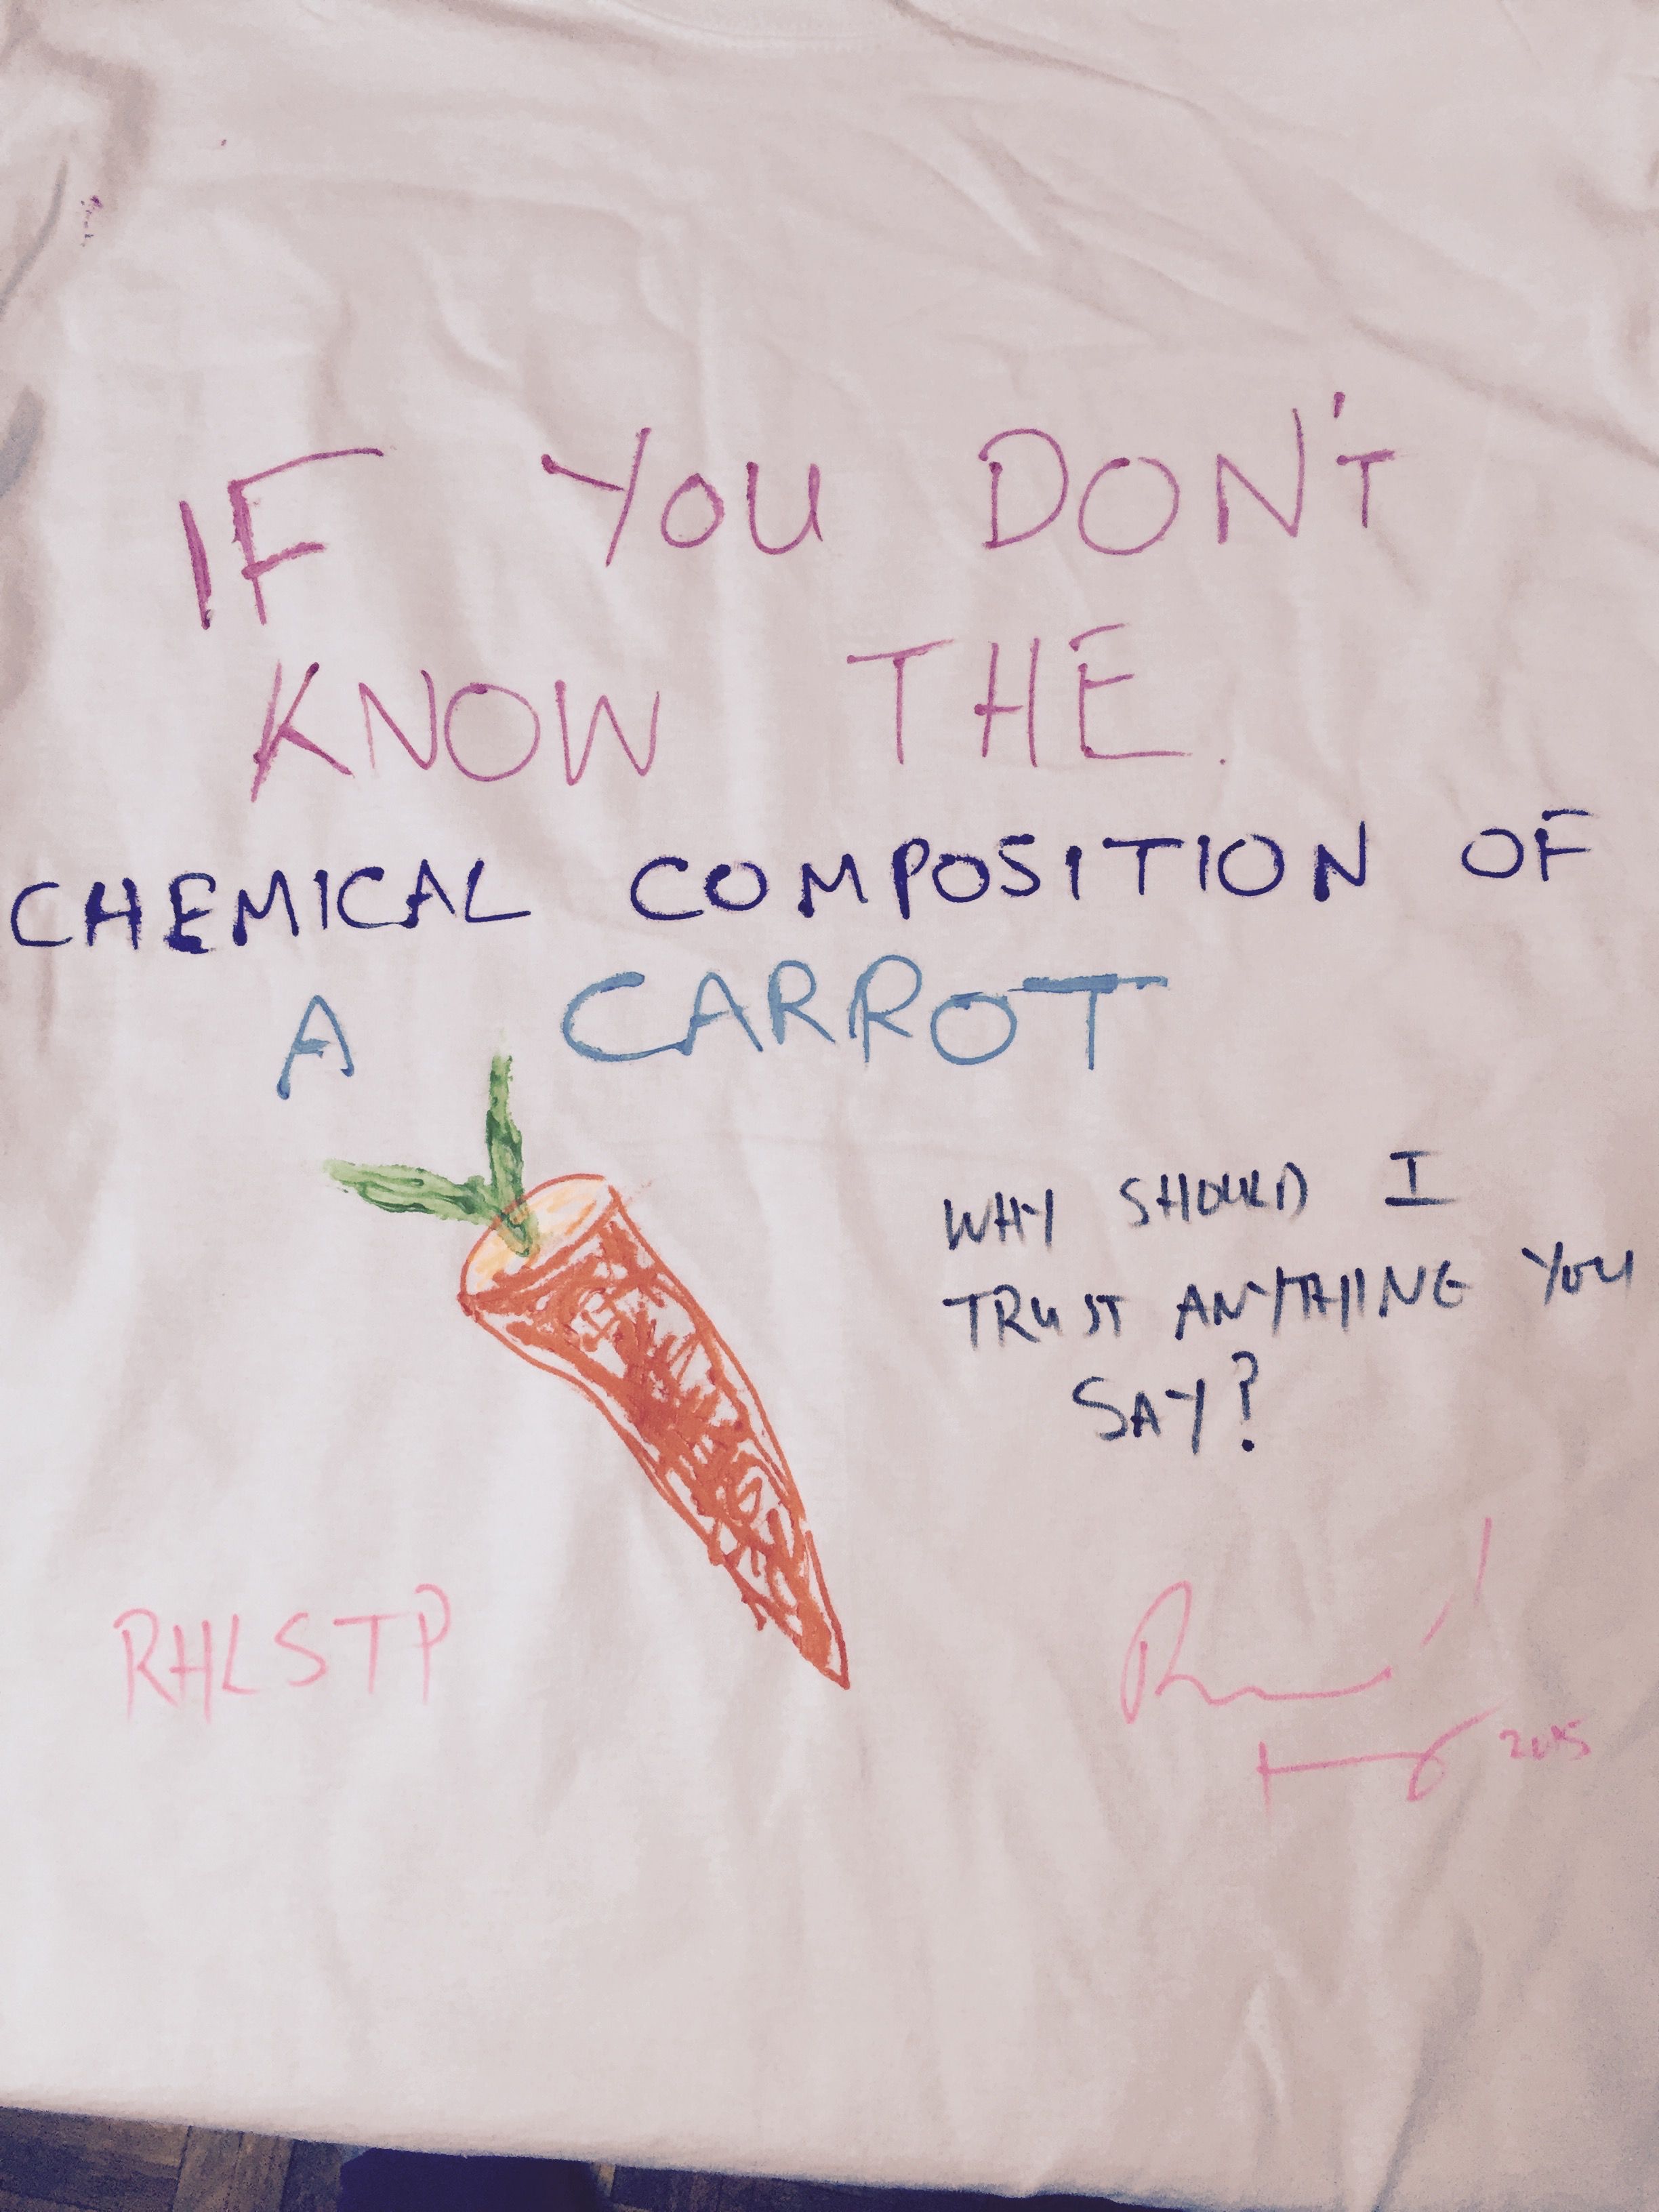 IF YOU DON'T
KNOW THE.
CHEMICAL COMPOSITION OF
A CARROT
WHY SHOULD I
TRUST ANYTHING YOU
SAY?
RHLSTP
2015